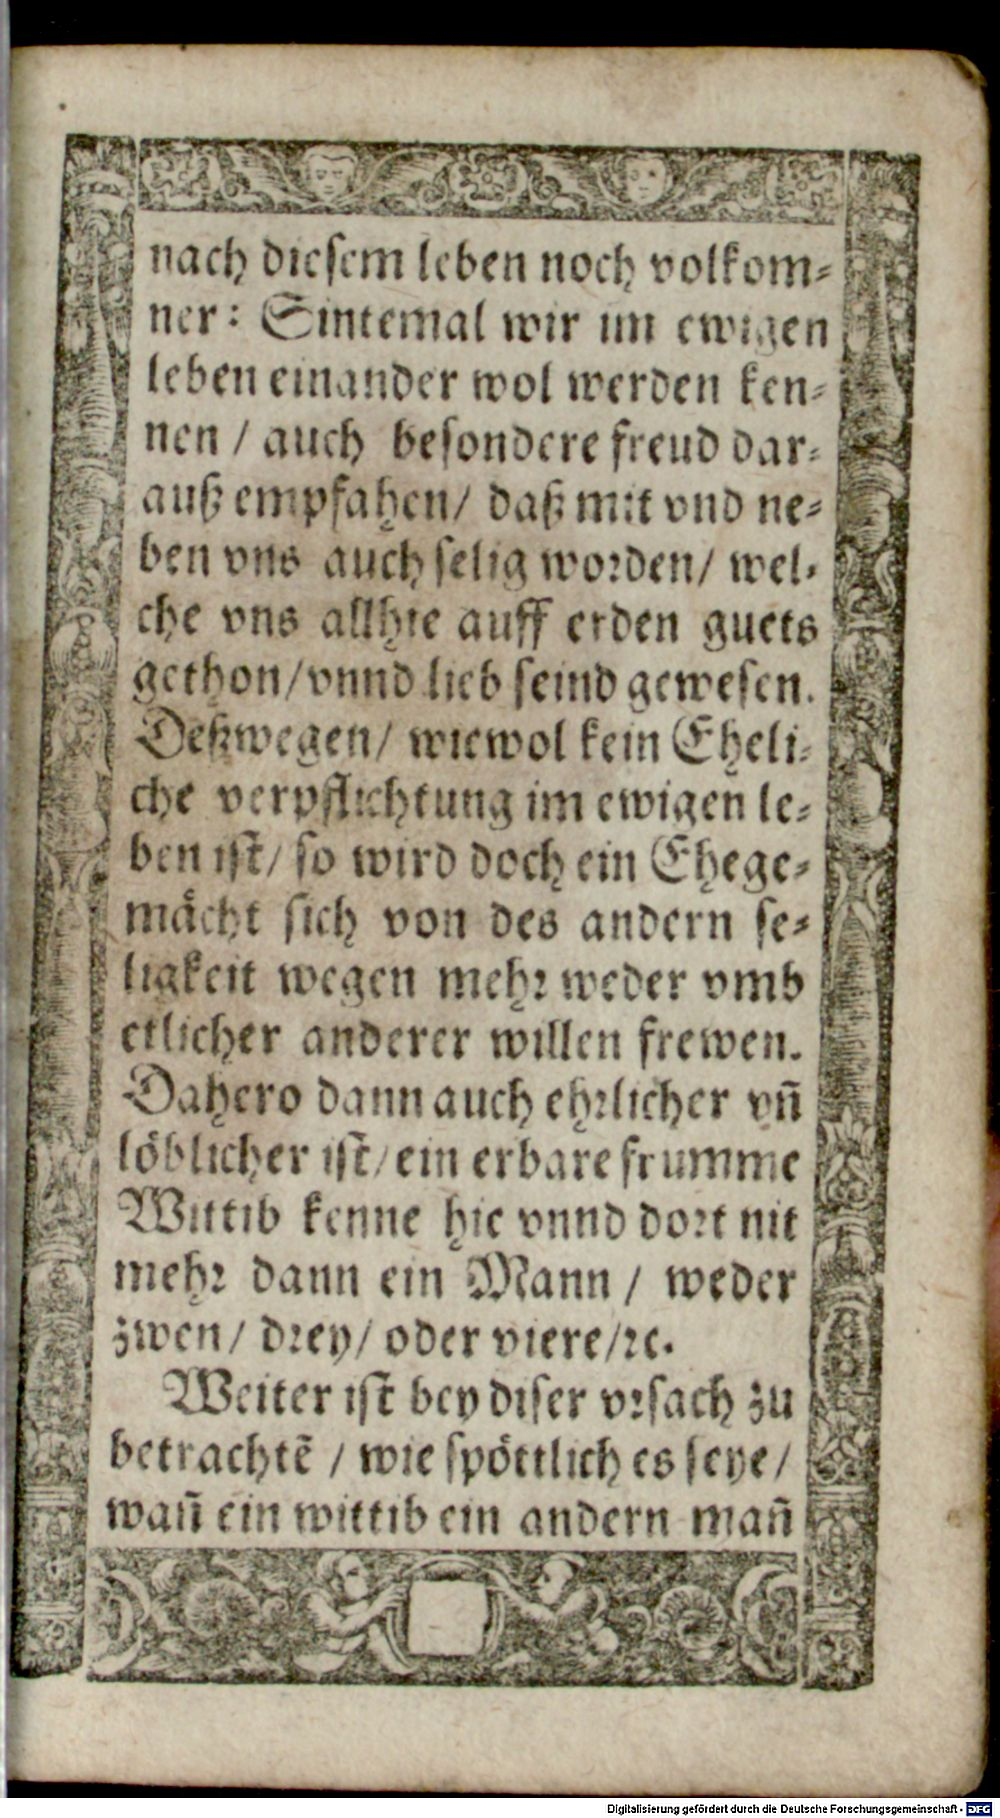 nach diesem leben noch volkom⸗
ner: Sintemal wir im ewigen
leben einander wol werden ken⸗
nen / auch besondere freud dar⸗
auß empfahen/ daß mit vnd ne⸗
ben vns auch selig worden/ wel⸗
che vns allhie auff erden guets
gethon/vnnd lieb seind gewesen.
Deßwegen/ wiewol kein Eheli⸗
che verpflichtung im ewigen le⸗
ben ist/ so wird doch ein Ehege⸗
mächt sich von des andern se⸗
ligkeit wegen mehr weder vmb
etlicher anderer willen frewen.
Dahero dann auch ehrlicher vn̄
löblicher ist/ ein erbare frumme
Wittib kenne hie vnnd dort nit
mehr dann ein Mann / weder
zwen/ drey/ oder viere/ꝛc.
Weiter ist bey diser vrsach zu
betrachtē / wie spöttlich es seye/
wan̄ ein wittib ein andern man̄
Digitalisierung gefördert durch die Deutsche Forschungsgemeinschaft - DFG